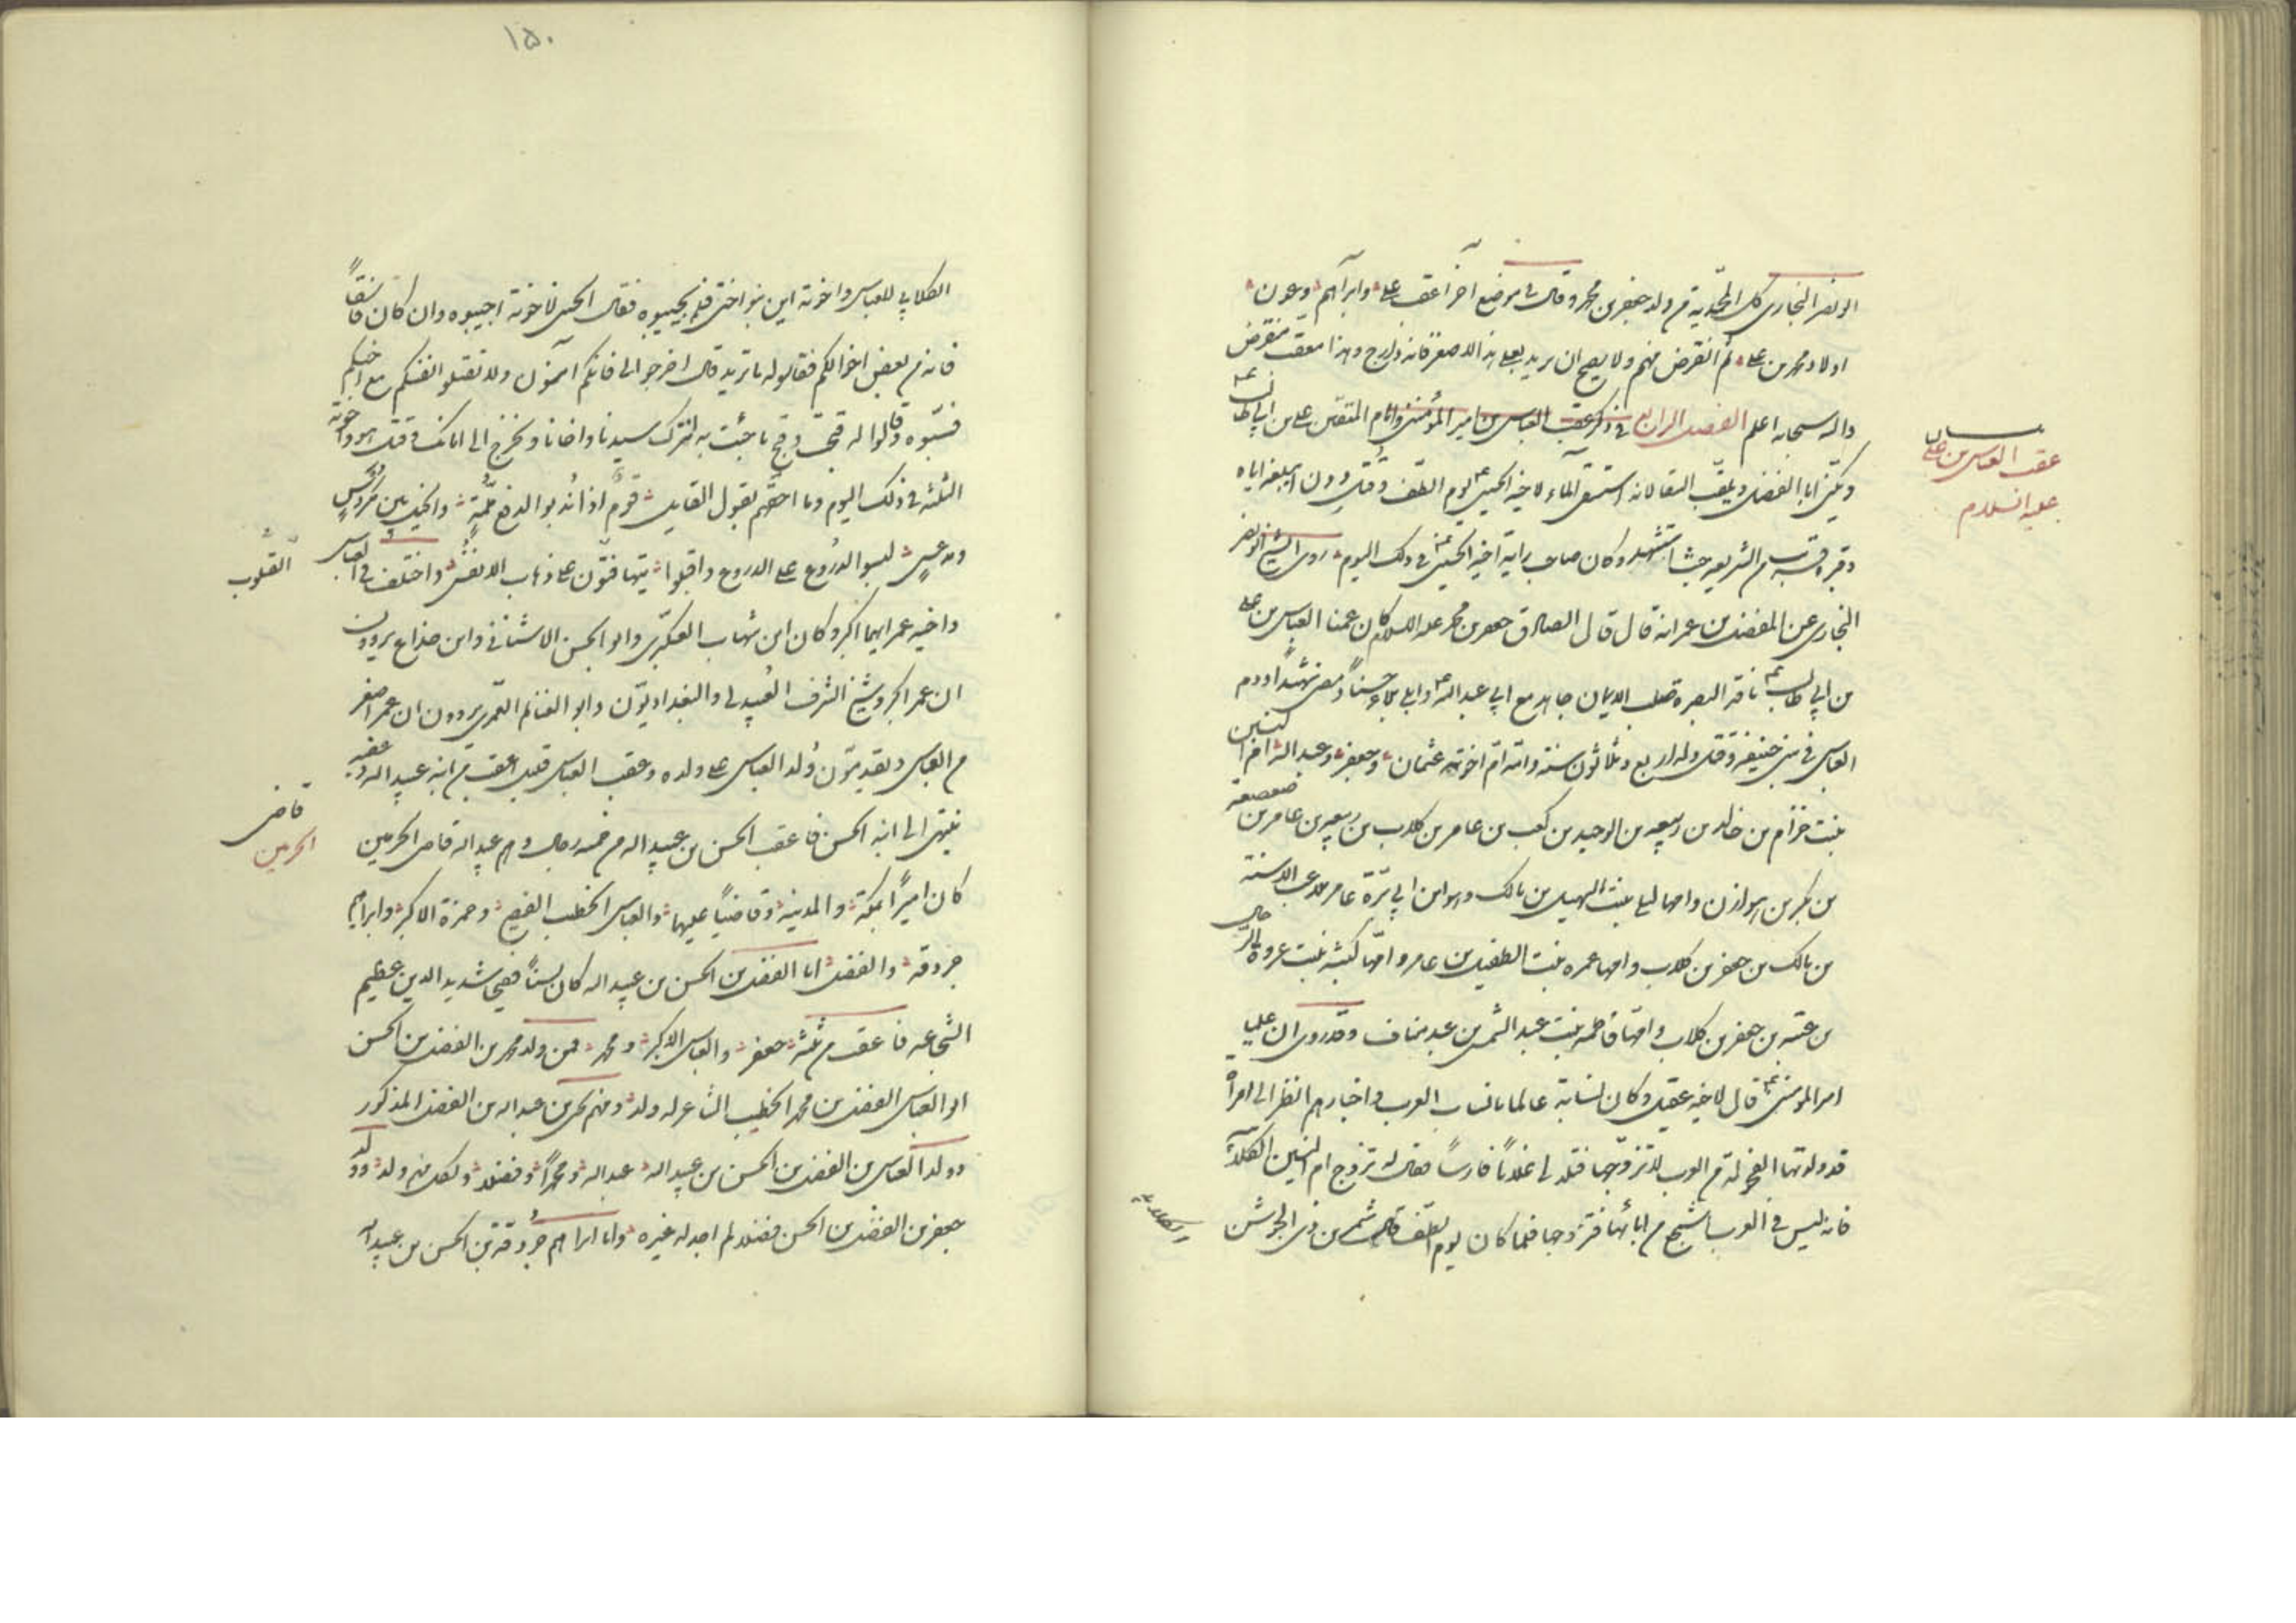 ابو نصر البخاري كل المحمدية من ولد جعفر بن محمد وقال في موضع آخر اعقب علي وابراهيم وعون
اولاد محمد بن علي ثم انقرض نسلهم ولا يصح ان يريد بعلي هذا الاصغر فانه دارج وهذا معقب منقرض
والله سبحانه اعلم الفصل الرابع في ذكر عقب العباس بن امير المؤمنين وامام المتقين علي بن ابي طالب
عقب العباس بن علي
عليه السلام
ويكنى ابا الفضل ويلقب السقا لانه استسقى الماء لاخيه الحسين ع يوم الطف وقتل دون ان يبلغه اياه
وقبره قريب من الشريعه حيث استشهد وكان صاحب راية اخيه الحسين ع في ذلك اليوم روى الشيخ ابو نصر
البخاري عن المفضل بن عمر انه قال قال الصادق جعفر بن محمد عليه السلام كان عمنا العباس بن علي
بن ابي طالب نافذ البصيرة صلب الايمان جاهد مع ابي عبد الله ع وابلى بلاء حسنا ومضى شهيدا ودم
العباس في بني حنيفة وقتل وله اربع وثلاثون سنة وامه ام اخوته عثمان وجعفر وعبد الله ام البنين
بنت حزام بن خالد بن ربيعه بن الوحيد بن كعب بن عامر بن كلاب بن ربيعه بن عامر بن صعصعة
بن بكر بن هوازن وامها ليلى بنت السهيل بن مالك وهو ابن ابي برة عامر ملاعب الاسنة
بن مالك بن جعفر بن كلاب وامها عمره بنت الطفيل بن عامر وامها كبشه بنت عروة الرحال
بن عتبه بن جعفر بن كلاب وامها فاطمه بنت عبد الشمس بن عبد مناف وقد روى ان عليا
امير المؤمنين ع قال لاخيه عقيل وكان نسابة عالما بانساب العرب واخبارهم انظر الى امرأة
قد ولدتها الفحولة من العرب لاتزوجها فتلد لي غلاما فارسا فقال له تزوج ام البنين الكلابية
فانه ليس في العرب اشجع من ابائها فتزوجها فلما كان يوم الطف قال شمر بن ذي الجوشن
الكلابي
١٥٠
الكلابي للعباس واخوته اين بنو اختي فلم يجيبوه فقال الحسين لاخوته اجيبوه وان كان فاسقا
فانه من بعض اخوالكم فقالوا له ما تريد قال اخرجوا الي فانكم آمنون ولا تقتلوا انفسكم مع اخيكم
فسبوه وقالوا له قبحت وقبح ما جئت به انترك سيدنا واخانا ونخرج الى امانك وقتل هو واخوته
الثلثه في ذلك اليوم وما احقهم بقول القايل قوم اذا نودوا لدفع ملمة والخيل بين مدعس
ومكردس لبسوا القلوب على الدروع واقبلوا يتهافتون على ذهاب الانفس واختلف في العباس
القلوب
واخيه عمر ايهما اكبر وكان ابن شهاب العكبري وابو الحسن الاشناني وابن خداع يروون
ان عمر اكبر وشيخ الشرف العبيدلي والبغداديون وابو الغنائم العمري يروون ان عمر اصغر
من العباس ويقدمون ولد العباس على ولده وعقب العباس قليل اعقب من ابنه عبيد الله وعقبه
ينتهي الى ابنه الحسن فاعقب الحسن بن عبيد الله من خمسه رجال وهم عبيد الله قاضي الحرمين
قاضي
الحرمين
كان اميرا بمكة والمدينة وقاضيا عليهما والعباس الخطيب الفصيح وحمزة الاكبر وابراهيم
جردقة والفضل اما الفضل بن الحسن بن عبيد الله كان لسنا فصيحا شديد الدين عظيم
الشجاعه فاعقب من ثلثة جعفر والعباس الاكبر ومحمد فمن ولد محمد بن الفضل بن الحسن
ابو العباس الفضل بن محمد الخطيب الشاعر له ولد ومنهم يحيى بن عبد الله بن الفضل المذكور
وولد العباس بن الفضل بن الحسن بن عبيد الله عبد الله ومحمدا وفضلا ولكل منهم ولد وولد
جعفر بن الفضل بن الحسن فضلا لم اجد له غيره واما ابراهيم جردقة بن الحسن بن عبيد الله